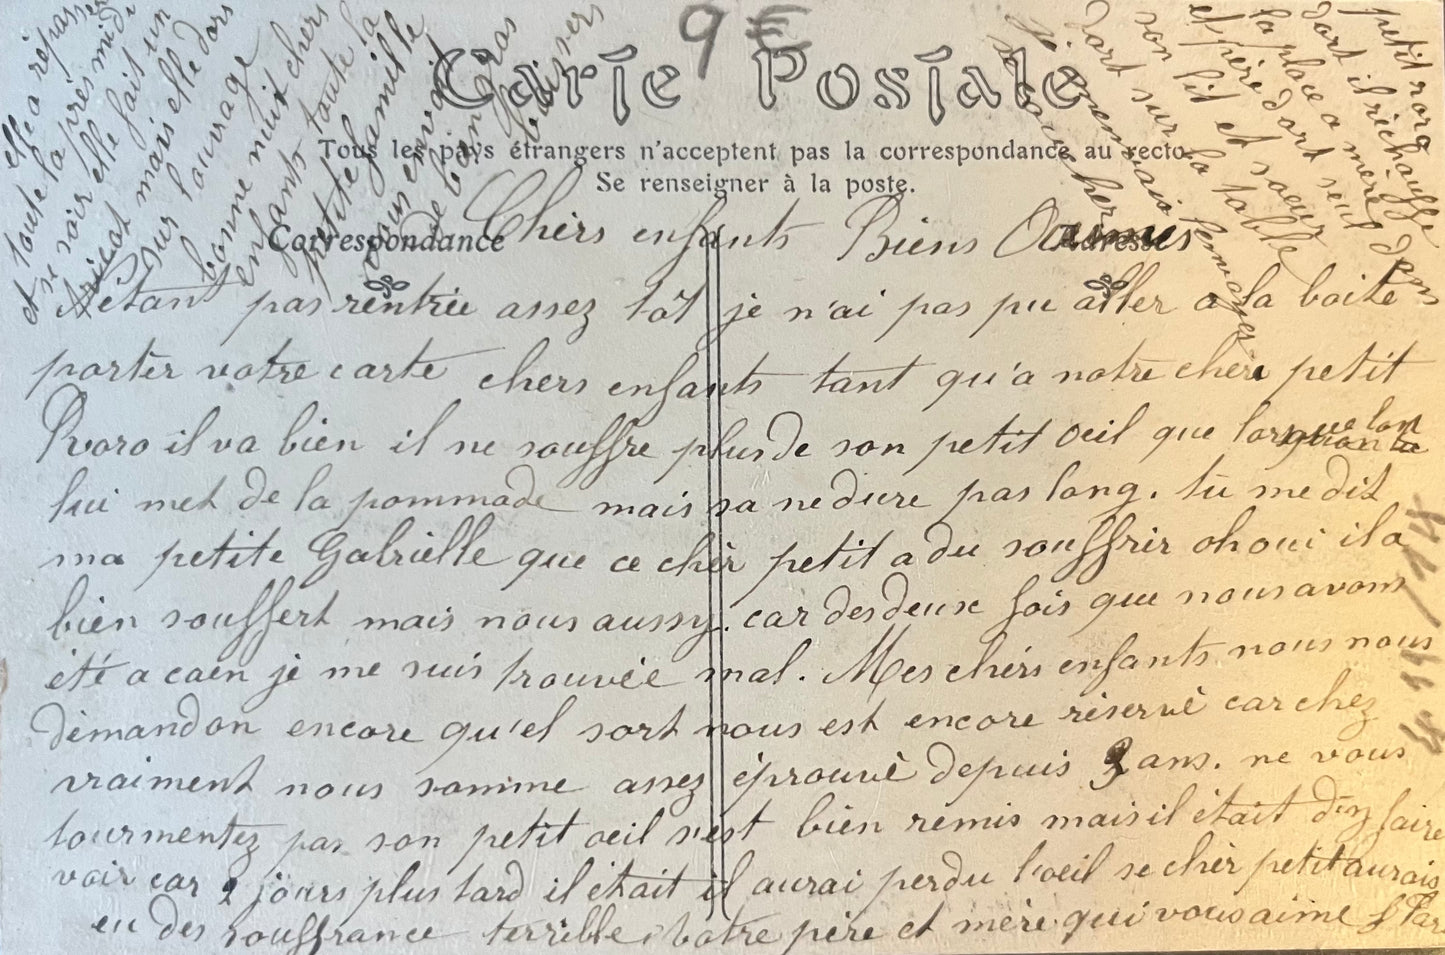 9 €
Carte Postale
Tous les pays étrangers n'acceptent pas la correspondance au recto
Se renseigner à la poste.
Correspondance
Adresse
Chers enfants Biens aimés
N'étant pas rentrée assez tôt je n'ai pas pu aller a la boite
porter votre carte chers enfants tant qu'a notre chère petit
Roro il va bien il ne souffre plus de son petit oeil que lorsque lon
lui met de la pommade mais sa ne dure pas long. tu me dit
ma petite Gabrielle que ce chèr petit a du souffrir oh oui il a
bien souffert mais nous aussy. car des deux fois que nous avons
été a caen je me suis trouvée mal. Mes chèrs enfants nous nous
demandon encore qu'el sort nous est encore réservé car chez
vraiment nous somme assez éprouvé depuis 3 ans. ne vous
tourmentez pas son petit oeil s'est bien remis mais il était d'y faire
voir car 2 jours plus tard il était il aurai perdu l'oeil se chèr petit aurais
eu des souffrance terrible. votre père et mère qui vous aime
petit roro
dort il réchauffe
la place a mère
et père dort seul dans
son lit et soeur
dort sur la table
je m'en vais l'envoyer
se coucher
elle a repassé
toute la près midi
et se soir elle fait un
tricot mais elle dors
sur louvrage
bonne nuit chers
enfants toute la
petite famille
vous envoit
de bon gros
baisers